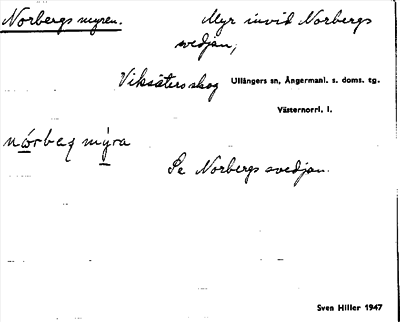 Norbergs myren.
Myr invid Norbergs
svedjan,
Viksäters skog
Ullångers sn, Ångermanl. s. doms. tg.
Västernorrl. l.
nórbæʂ mỳra
Se Norbergs svedjan.
Sven Hiller 1947